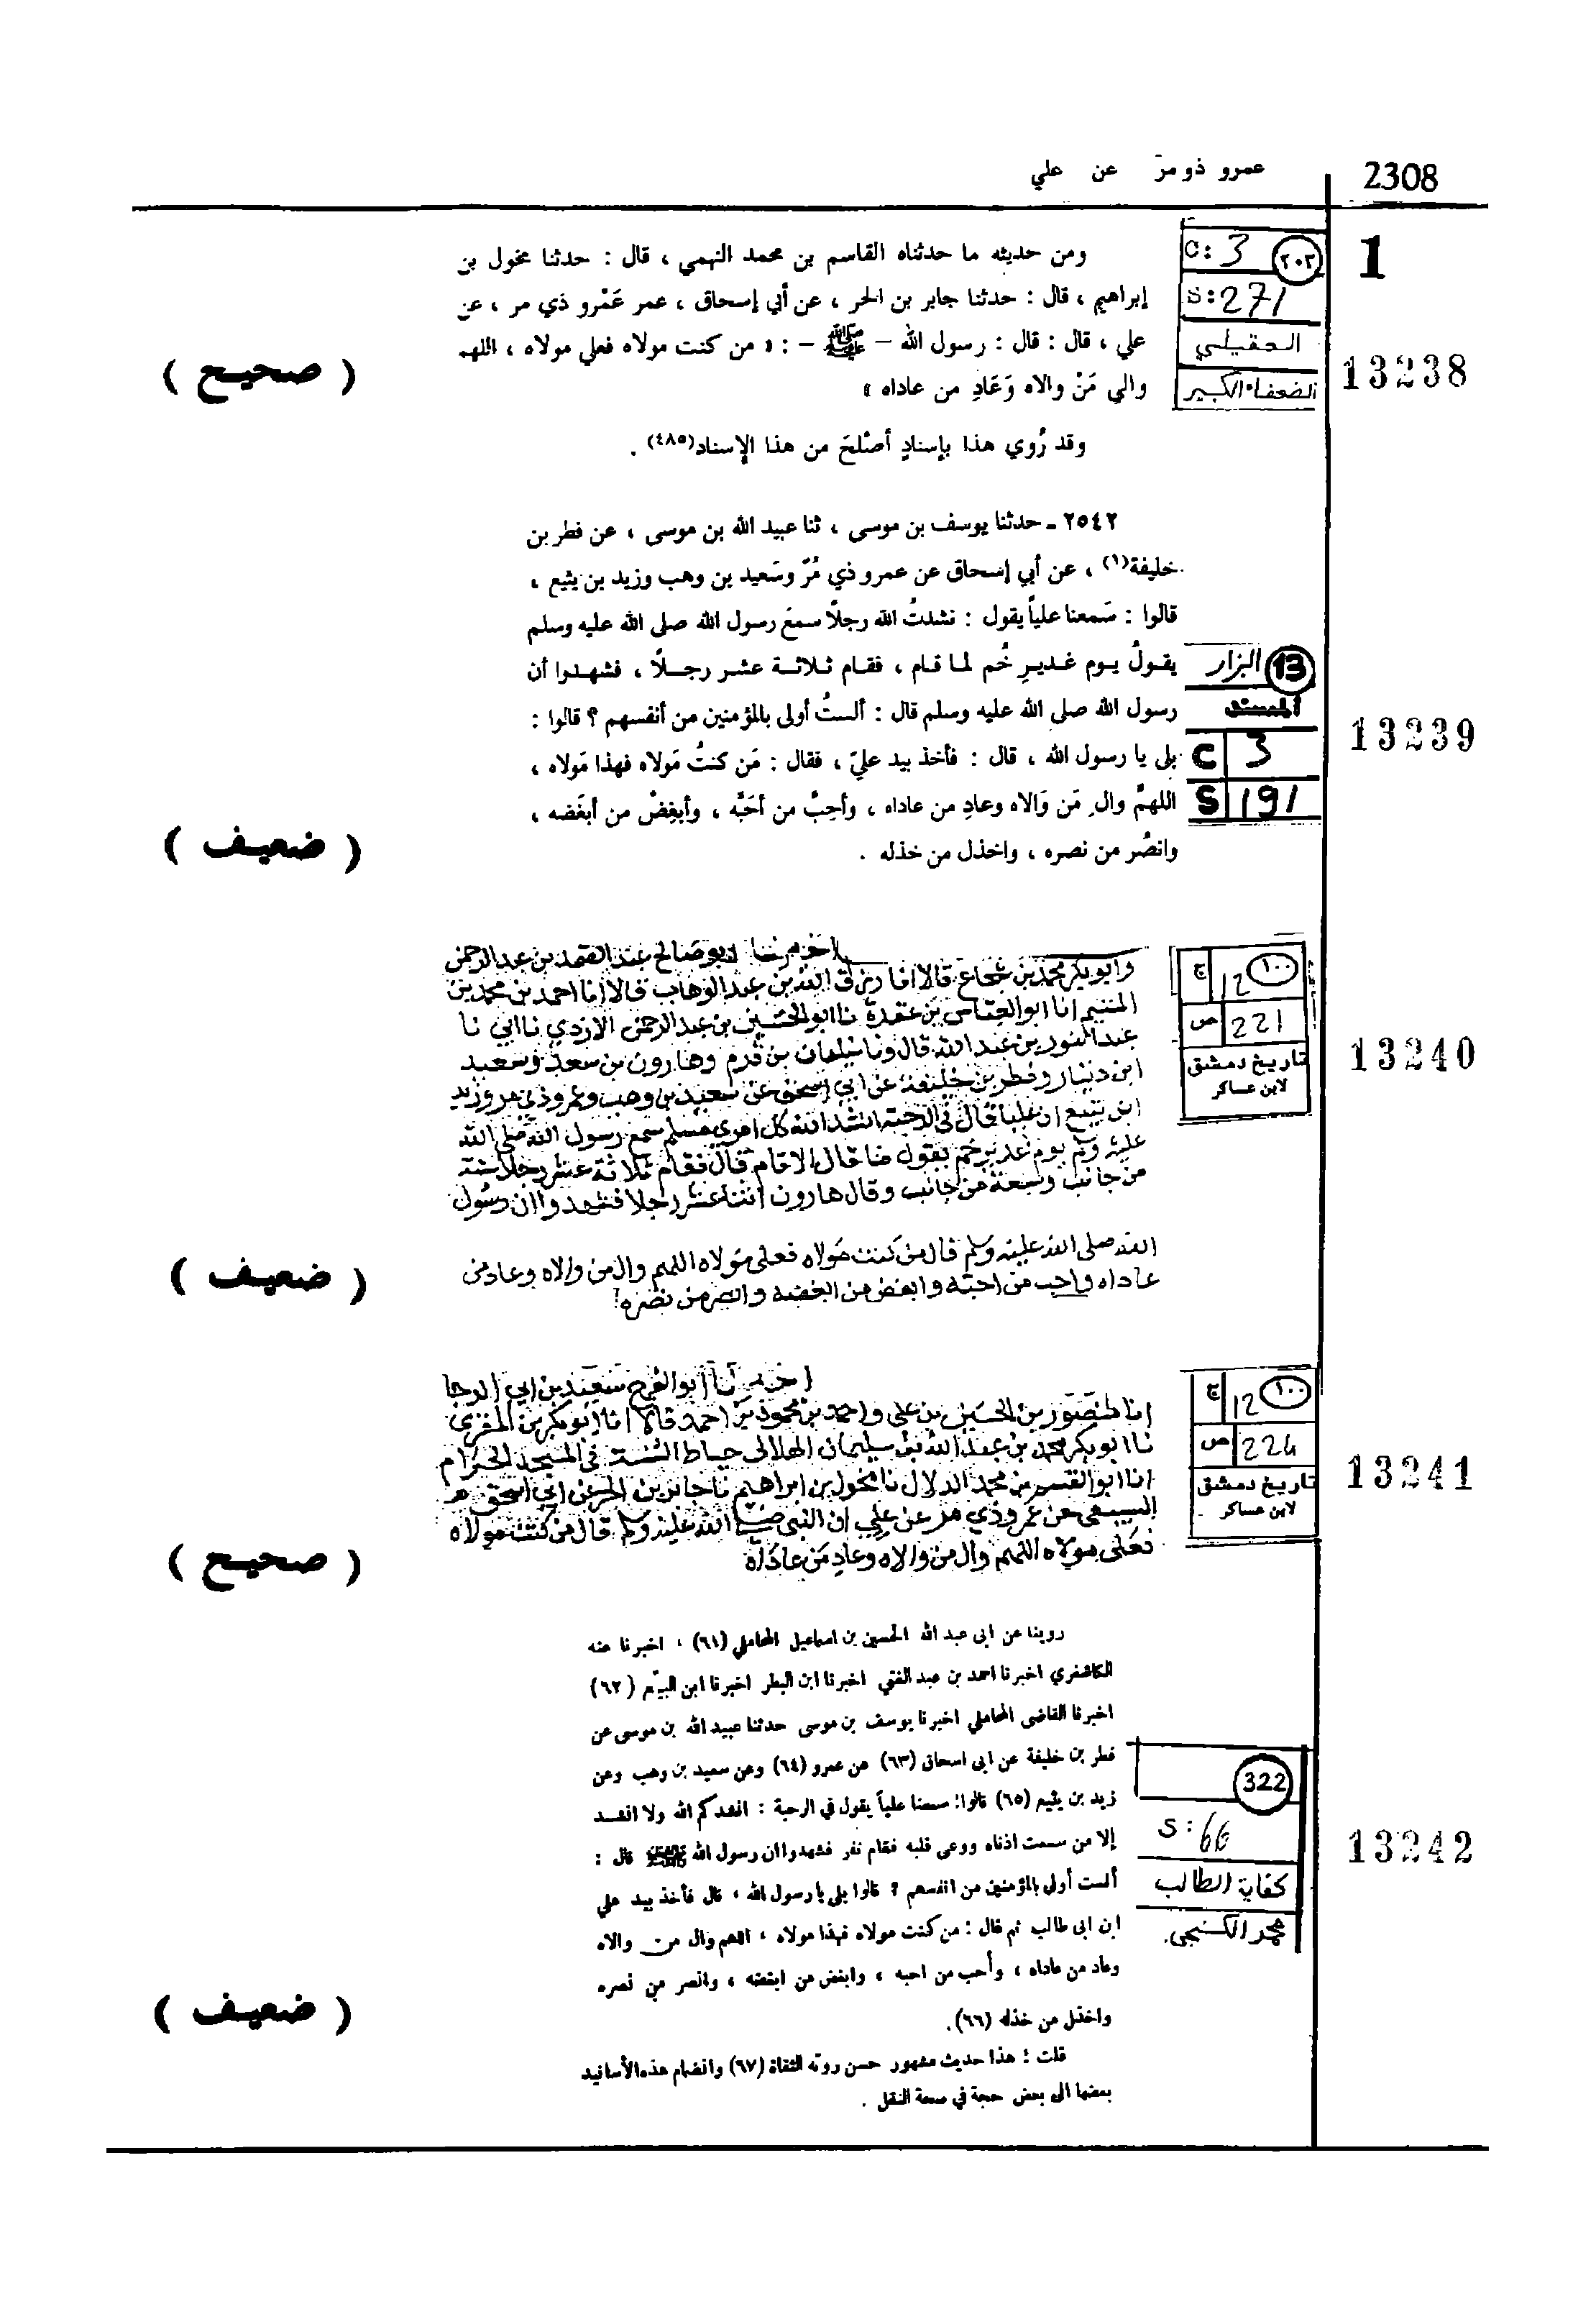 2308
عمرو ذو مرّ عن علي
1
C: 3
٢٠٢
S: 271
العقيلي
الضعفاء الكبير
13238
ومن حديثه ما حدثناه القاسم بن محمد النهمي ، قال : حدثنا مخول بن
إبراهيم ، قال : حدثنا جابر بن الحر ، عن أبي إسحاق ، عمر عَمْرو ذي مر ، عن
علي ، قال : قال : رسول الله – ﷺ – : « من كنت مولاه فعلي مولاه ، اللهم
والي مَنْ والاه وَعَادِ من عاداه »
وقد رُوي هذا بإسنادٍ أصْلحَ من هذا الإسناد(٤٨٥) .
( صحيح )
٢٥٤٢ ـ حدثنا يوسف بن موسى ، ثنا عبيد الله بن موسى ، عن فطر بن
خليفة(١) ، عن أبي إسحاق عن عمرو ذي مُرّ وسَعيد بن وهب وزيد بن يثيع ،
قالوا : سَمعنا علياً يقول : نشدتُ الله رجلاً سمعَ رسول الله صلى الله عليه وسلم
يقولُ يوم غديرِ خُم لما قام ، فقام ثلاثة عشر رجلاً ، فشهدوا أن
رسول الله صلى الله عليه وسلم قال : ألستُ أولى بالمؤمنين من أنفسهم ؟ قالوا :
بلى يا رسول الله ، قال : فأخذ بيد عليّ ، فقال : مَن كنتُ مَولاه فهذا مَولاه ،
اللهمَّ والِ مَن وَالاه وعادِ من عاداه ، وأحِبَّ من أحَبَّه ، وأبغِضْ من أبغَضه ،
وانصُر من نصره ، واخذل من خذله .
13
البزار
المسند
C 3
S 191
13239
( ضعيف )
اخبرنا ابو صالح عبد الصمد بن عبد الرحمن
وابو بكر محمد بن شجاع قالا انا رزق الله بن عبد الوهاب قالا انا احمد بن محمد بن
المتيم انا ابو العباس بن عقدة نا ابو الحسين بن عبد الرحمن الازدي نا ابي نا
عبد النور بن عبد الله قال ونا سليمان بن قرم وهارون بن سعد وسعيد
ابن دينار وفطر بن خليفة عن ابي اسحق عن سعيد بن وهب وعمرو ذي مر وزيد
ابن يثيع ان عليا قال في الرحبة انشد الله كل امرئ مسلم سمع رسول الله صلى الله
عليه وسلم يوم غدير خم يقول ما قال الا قام قال فقام ثلاثة عشر رجلا ستة
من جانب وسبعة من جانب وقال هارون اثنا عشر رجلا فشهدوا ان رسول
الله صلى الله عليه وسلم قال من كنت مولاه فعلى مولاه اللهم وال من والاه وعاد من
عاداه واحب من احبه وابغض من ابغضه وانصر من نصره
١٠٠
ج 12
ص 221
تاريخ دمشق
لابن عساكر
13240
( ضعيف )
اخبرنا ابو الفرج سعيد بن ابي الرجا
انا منصور بن الحسين بن علي واحمد بن محمود بن احمد قالا انا ابو بكر بن المقرئ
نا ابو بكر محمد بن عبد الله بن سليمان الهلالي خياط السنة في المسجد الحرام
انا ابو القسم بن محمد الدلال نا مخول بن ابراهيم نا جابر بن الحر عن ابي اسحق
السبيعى عن عمرو ذي مر عن علي ان النبي صلى الله عليه وسلم قال من كنت مولاه
فعلى مولاه اللهم وال من والاه وعاد من عاداه
١٠٠
ج 12
ص 224
تاريخ دمشق
لابن عساكر
13241
( صحيح )
روينا عن ابى عبد الله الحسين بن اسماعيل المحاملي (٦١) ، اخبرنا عنه
الكاشغري اخبرنا احمد بن عبد الغني اخبرنا ابن البطر اخبرنا ابن البيّع (٦٢)
اخبرنا القاضى المحاملي اخبرنا يوسف بن موسى حدثنا عبيد الله بن موسى عن
فطر بن خليفة عن ابى اسحاق (٦٣) عن عمرو (٦٤) وعن سعيد بن وهب وعن
زيد بن يثيع (٦٥) قالوا: سمعنا علياً يقول في الرحبة : انشدكم الله ولا انشد
إلا من سمعت اذناه ووعى قلبه فقام نفر فشهدوا ان رسول الله ﷺ قال :
ألست أولى بالمؤمنين من انفسهم ؟ قالوا بلى يا رسول الله ، قال فأخذ بيد علي
ابن ابى طالب ثم قال : من كنت مولاه فهذا مولاه ، اللهم وال من والاه
وعاد من عاداه ، وأحب من احبه ، وابغض من ابغضه ، وانصر من نصره
واخذل من خذله (٦٦).
قلت : هذا حديث مشهور حسن روته الثقاة (٦٧) وانضمام هذه الأسانيد
بعضها الى بعض حجة في صحة النقل .
322
S: 66
كفاية الطالب
محمد الكنجي
13242
( ضعيف )